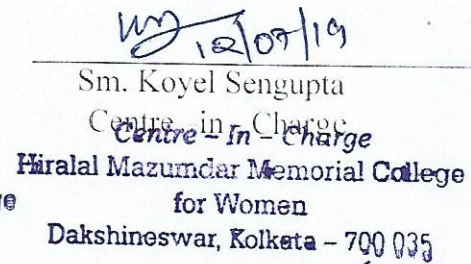 12/07/19
Sm. Koyel Sengupta
Centre in Charge
Centre - In - Charge
Hiralal Mazumdar Memorial College
for Women
Dakshineswar, Kolkata - 700 035